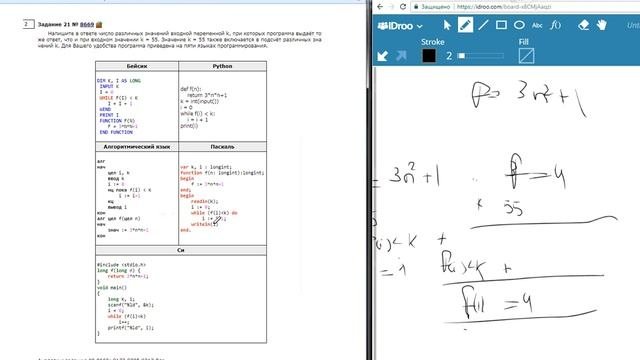 2 Задание 21 № 8669
Напишите в ответе число различных значений входной переменной k, при которых программа выдаёт то
же ответ, что и при входном значении k = 55. Значение k = 55 также включается в подсчёт различных зна
чений k. Для Вашего удобства программа приведена на пяти языках программирования.
Бейсик
Python
DIM K, I AS LONG
INPUT K
I = 0
WHILE F(I) < K
I = I + 1
WEND
PRINT I
FUNCTION F(N)
F = 3*N*N+1
END FUNCTION
def f(n):
return 3*n*n+1
k = int(input())
i = 0
while f(i) < k:
i = i + 1
print(i)
Алгоритмический язык
Паскаль
алг
нач
цел i, k
ввод k
i := 0
нц пока f(i) < k
i := i+1
кц
вывод i
кон
алг цел f(цел n)
нач
знач := 3*n*n+1
кон
var k, i : longint;
function f(n: longint):longint;
begin
f := 3*n*n+1
end;
begin
readln(k);
i := 0;
while (f(i)<k) do
i :=
writeln(i)
end.
Си
#include <stdio.h>
long f(long n) {
return 3*n*n+1;
}
void main()
{
long k, i;
scanf("%ld", &k);
i = 0;
while (f(i)<k)
i++;
printf("%ld", i);
}
Защищено https://idroo.com/board-x8CMjAaqzi
iDroo
Stroke
Color
2
P = 3n²+1
= 3n²+1 f = 4
k 55
(i)<k +
= i f(i)<k +
f(1) = 4